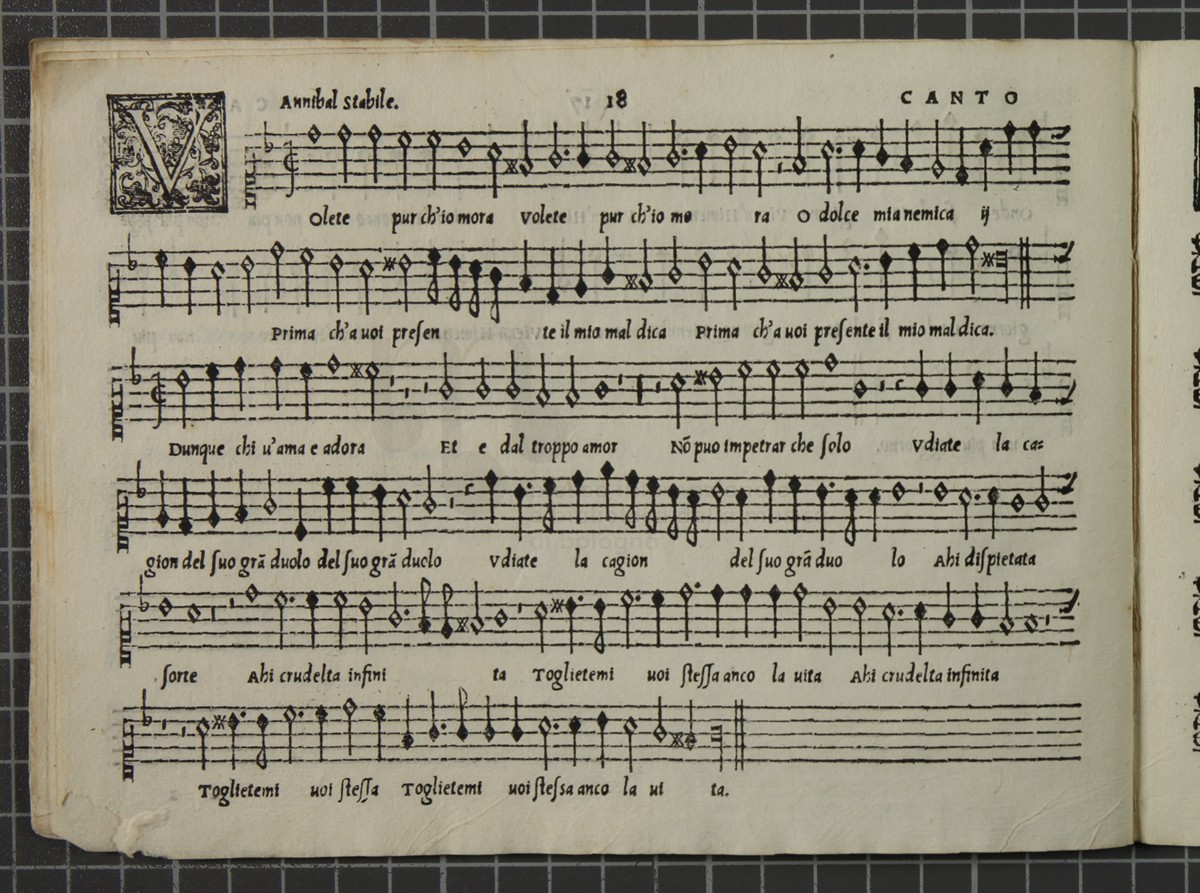 Annibal Stabile. 18 CANTO
VOlete pur ch'io mora Volete pur ch'io mo ra O dolce mia nemica ij
Prima ch'a uoi presen te il mio mal dica Prima ch'a uoi presente il mio mal dica.
Dunque chi u'ama e adora Et e dal troppo amor Nō puo impetrar che solo Vdiate la ca=
gion del suo grā duolo del suo grā duolo Vdiate la cagion del suo grā duo lo Ahi dispietata
sorte Ahi crudelta infini ta Toglietemi uoi stessa anco la uita Ahi crudelta infinita
Toglietemi uoi stessa Toglietemi uoi stessa anco la ui ta.